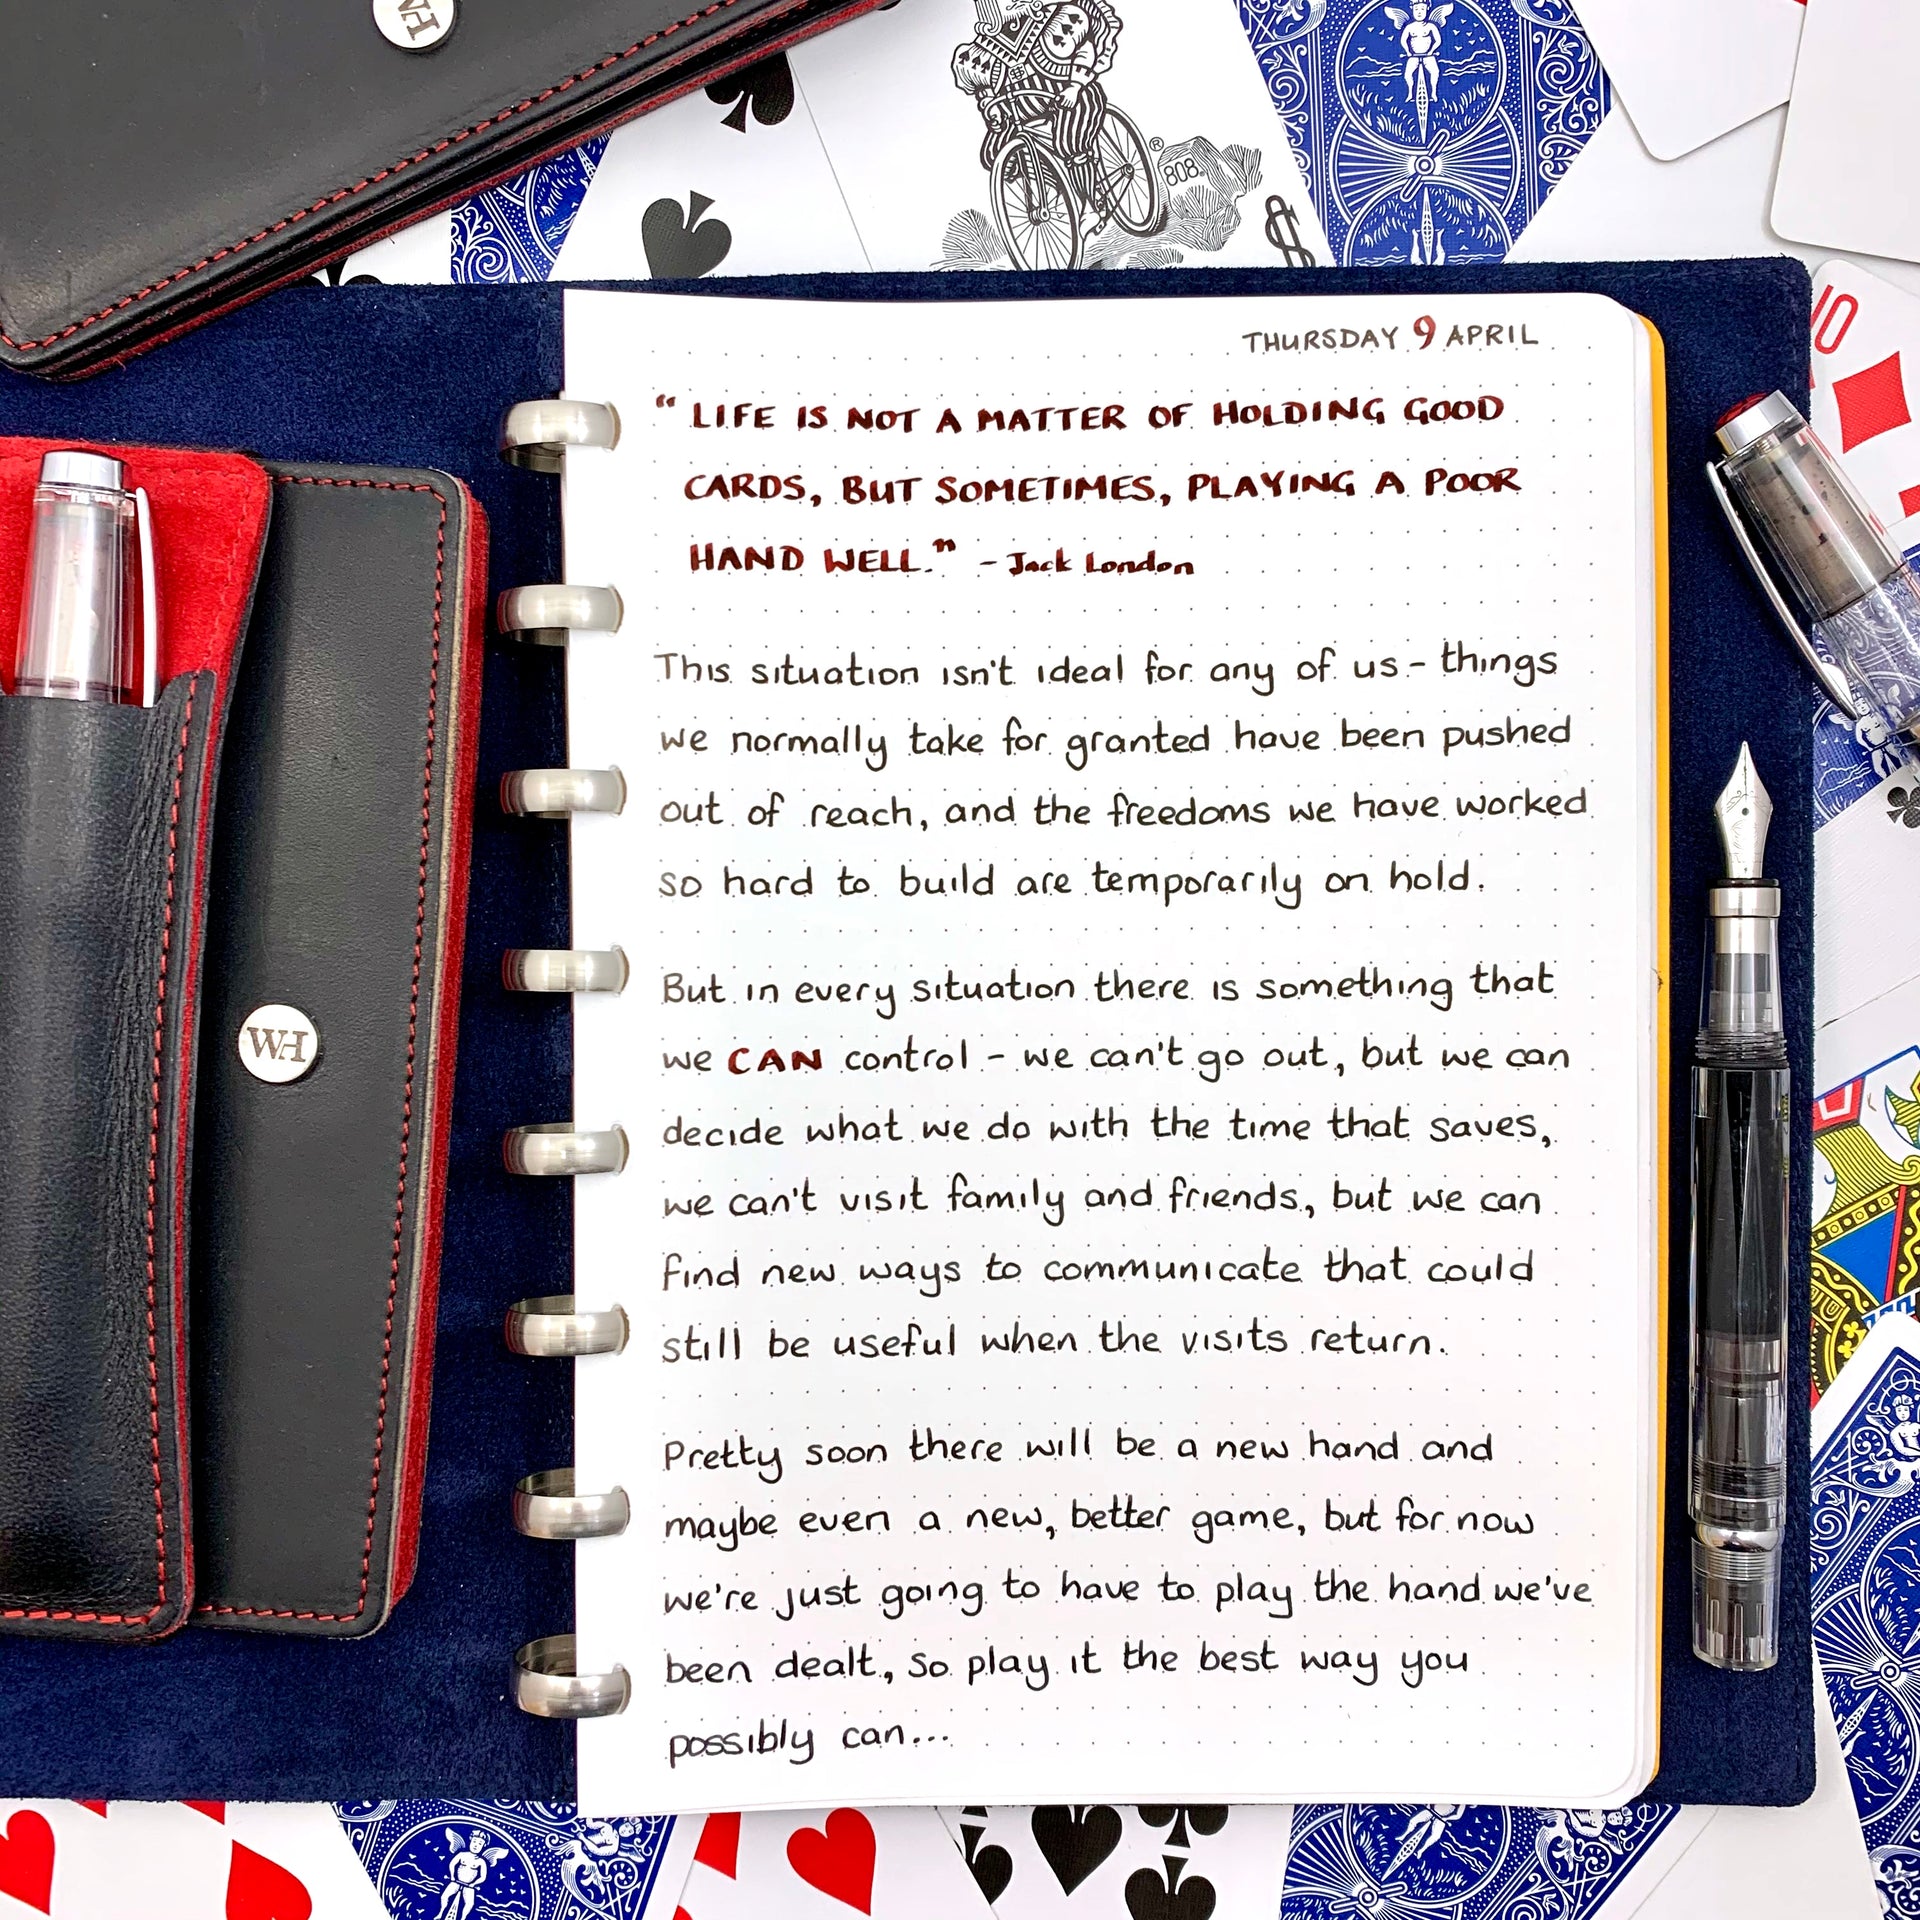 WH
808
$
10
THURSDAY 9 APRIL
“ LIFE IS NOT A MATTER OF HOLDING GOOD
CARDS, BUT SOMETIMES, PLAYING A POOR
HAND WELL.” - Jack London
This situation isn't ideal for any of us - things
we normally take for granted have been pushed
out of reach, and the freedoms we have worked
so hard to build are temporarily on hold.
But in every situation there is something that
we CAN control - we can't go out, but we can
decide what we do with the time that saves,
we can't visit family and friends, but we can
find new ways to communicate that could
still be useful when the visits return.
Pretty soon there will be a new hand and
maybe even a new, better game, but for now
we're just going to have to play the hand we've
been dealt, so play it the best way you
possibly can...
WH